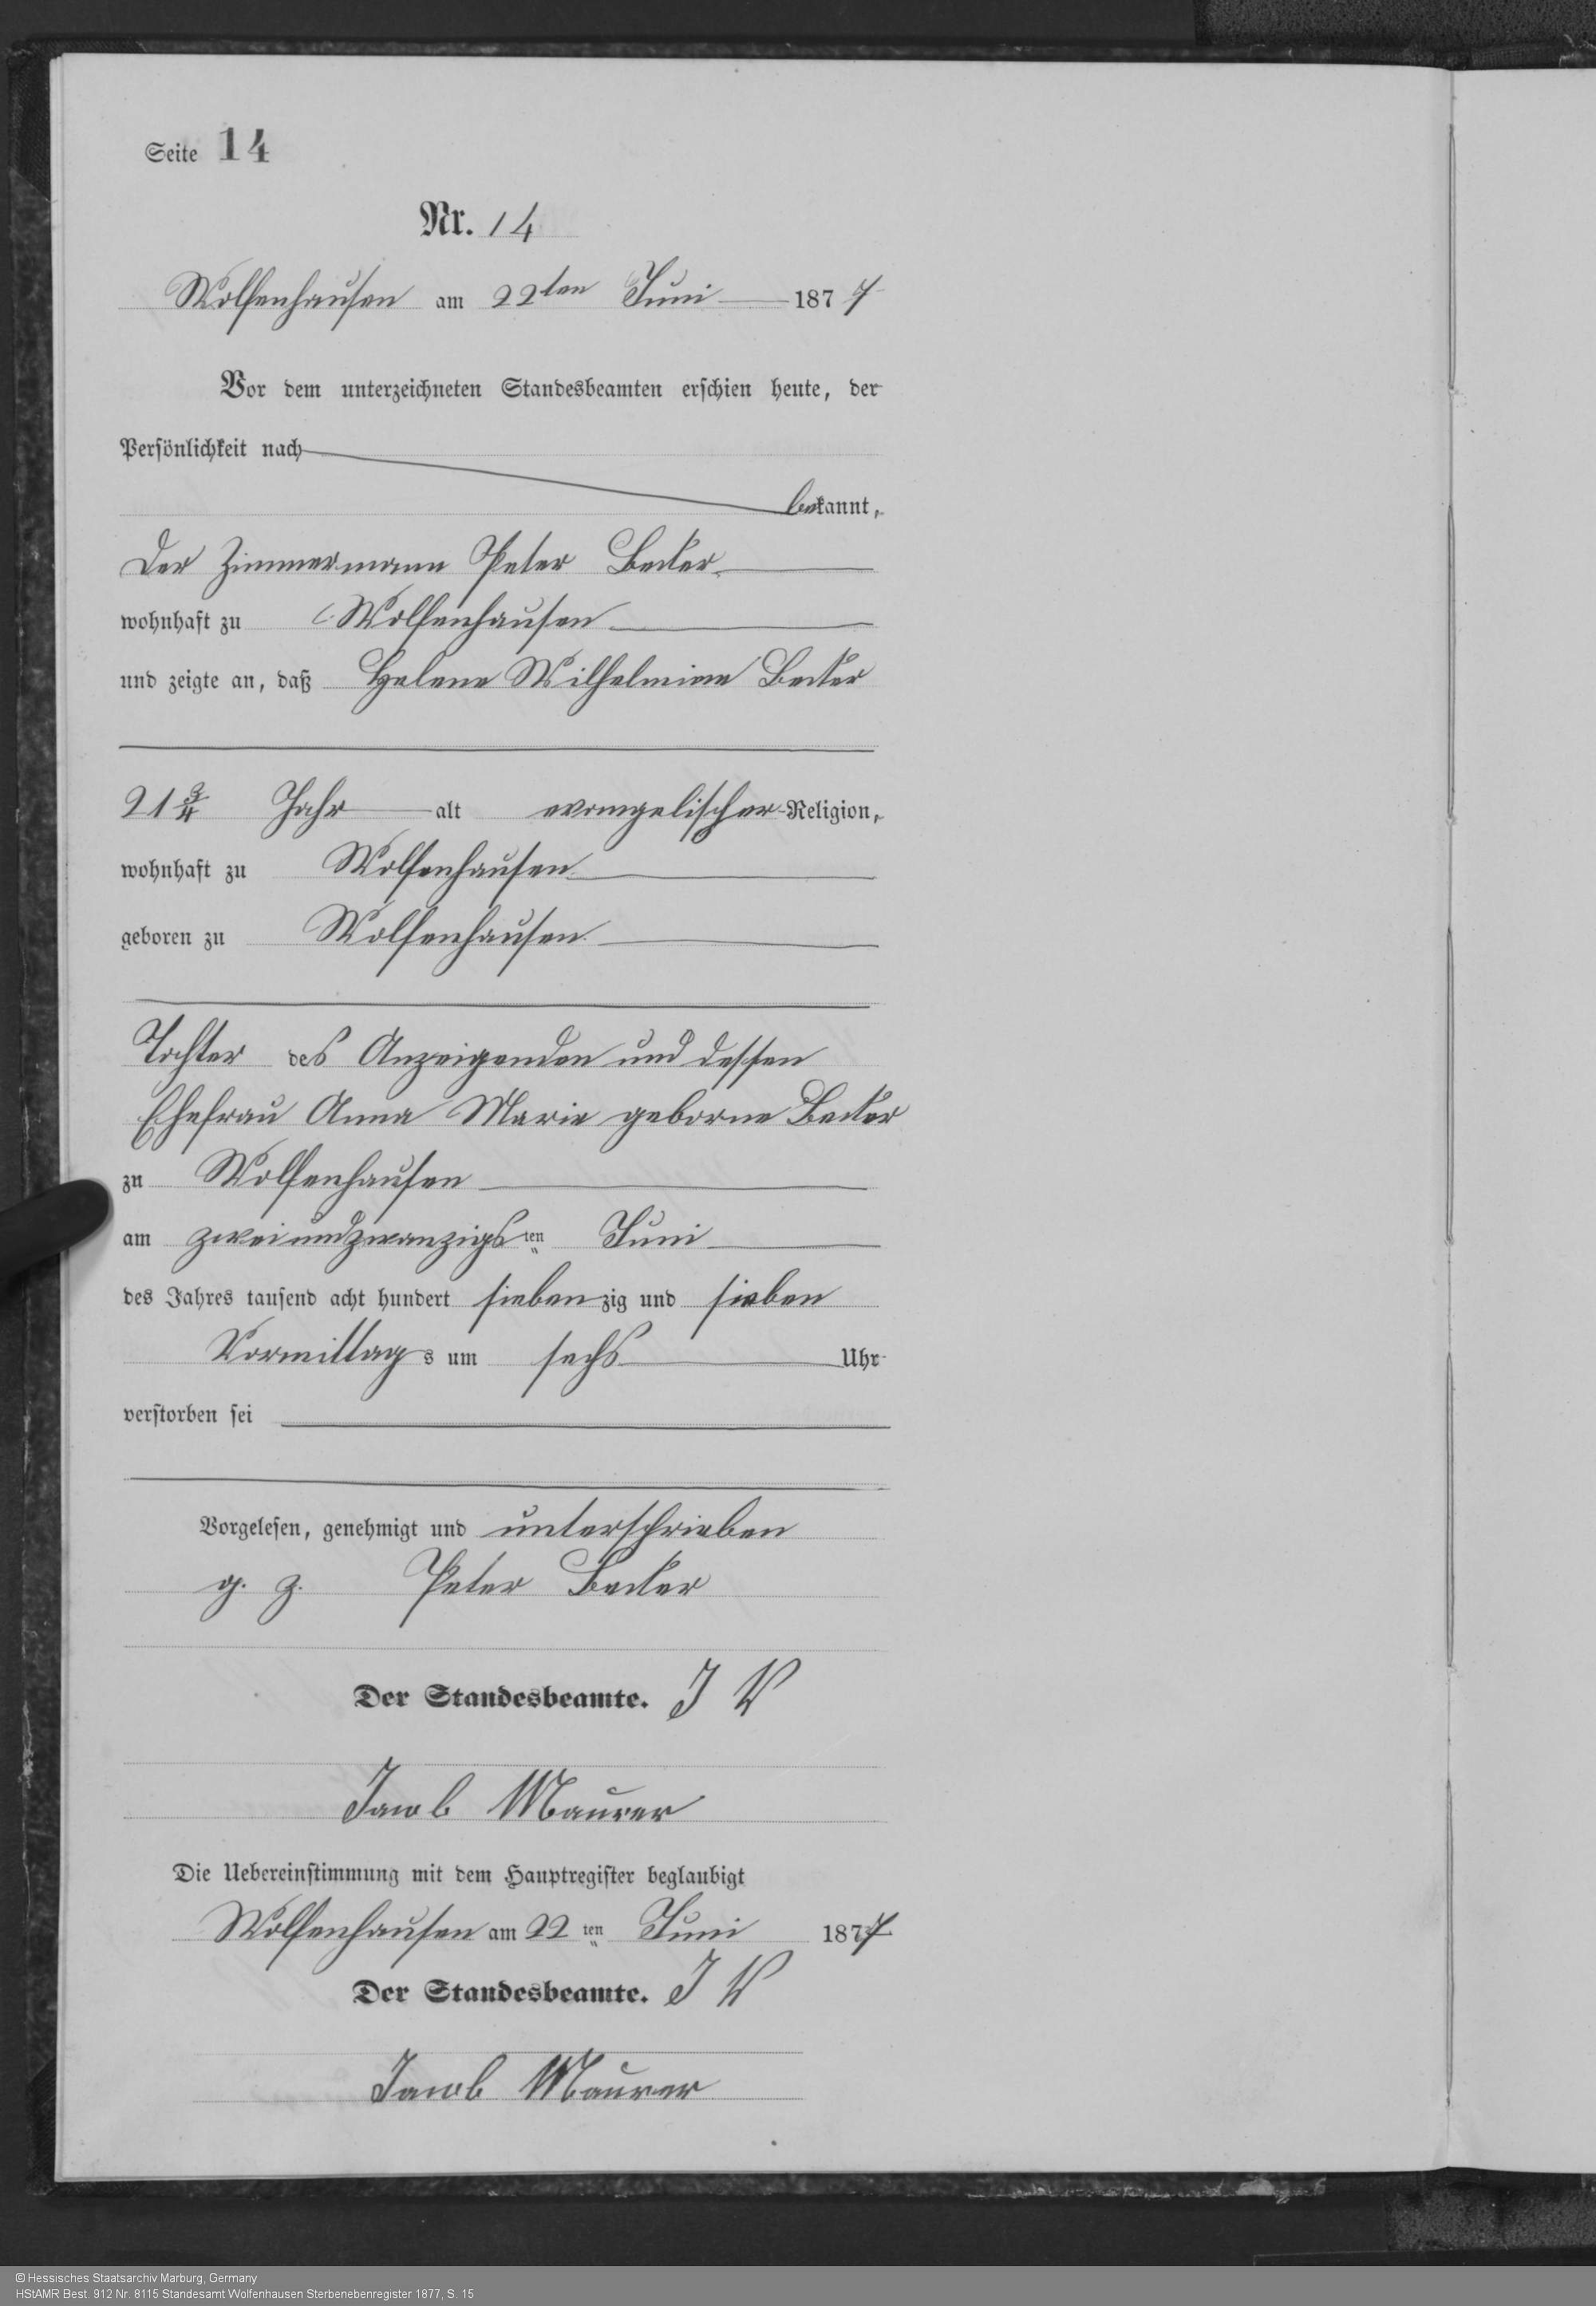 Seite 14
Nr. 14
Wolfenhausen am 22ten Juni 1877
Vor dem unterzeichneten Standesbeamten erschien heute, der
Persönlichkeit nach
bekannt,
Der Zimmermann Peter Becker
wohnhaft zu Wolfenhausen
und zeigte an, daß Helene Wilhelmine Becker
21 3/4 Jahr alt evangelischer Religion,
wohnhaft zu Wolfenhausen
geboren zu Wolfenhausen
Tochter des Anzeigenden und dessen
Ehefrau Anna Marie geborne Becker
zu Wolfenhausen
am zweiundzwanzigsten Juni
des Jahres tausend acht hundert siebenzig und sieben
Vormittags um sechs Uhr
verstorben sei
Vorgelesen, genehmigt und unterschrieben
g. z. Peter Becker
Der Standesbeamte. J V
Jacob Maurer
Die Uebereinstimmung mit dem Hauptregister beglaubigt
Wolfenhausen am 22 ten Juni 1877
Der Standesbeamte. J V
Jacob Maurer
© Hessisches Staatsarchiv Marburg, Germany
HStAMR Best. 912 Nr. 8115 Standesamt Wolfenhausen Sterbenebenregister 1877, S. 15